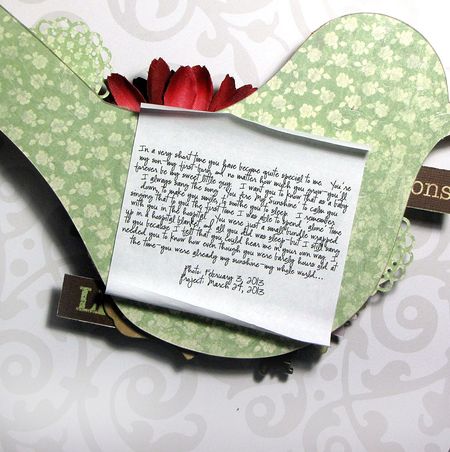 In a very short time you have become quite special to me. You're
my son-my first born and no matter how much you grow-you'll
forever be my sweet little guy. I want you to know that as a baby
I always sang the song "You are My Sunshine" to calm you
down, to make you smile, to soothe you to sleep. I remember
singing that to you the first time I was able to spend alone time
with you in the hospital. You were just a small bundle wrapped
up in a hospital blanket and all you did was sleep-but I still sang
it you because I felt that you could hear me in your own way. I
needed you to know how even though you were barely hours old at
the time-you were already my sunshine-my whole world...
photo: February 3, 2013
project: March 29, 2013
ons
L